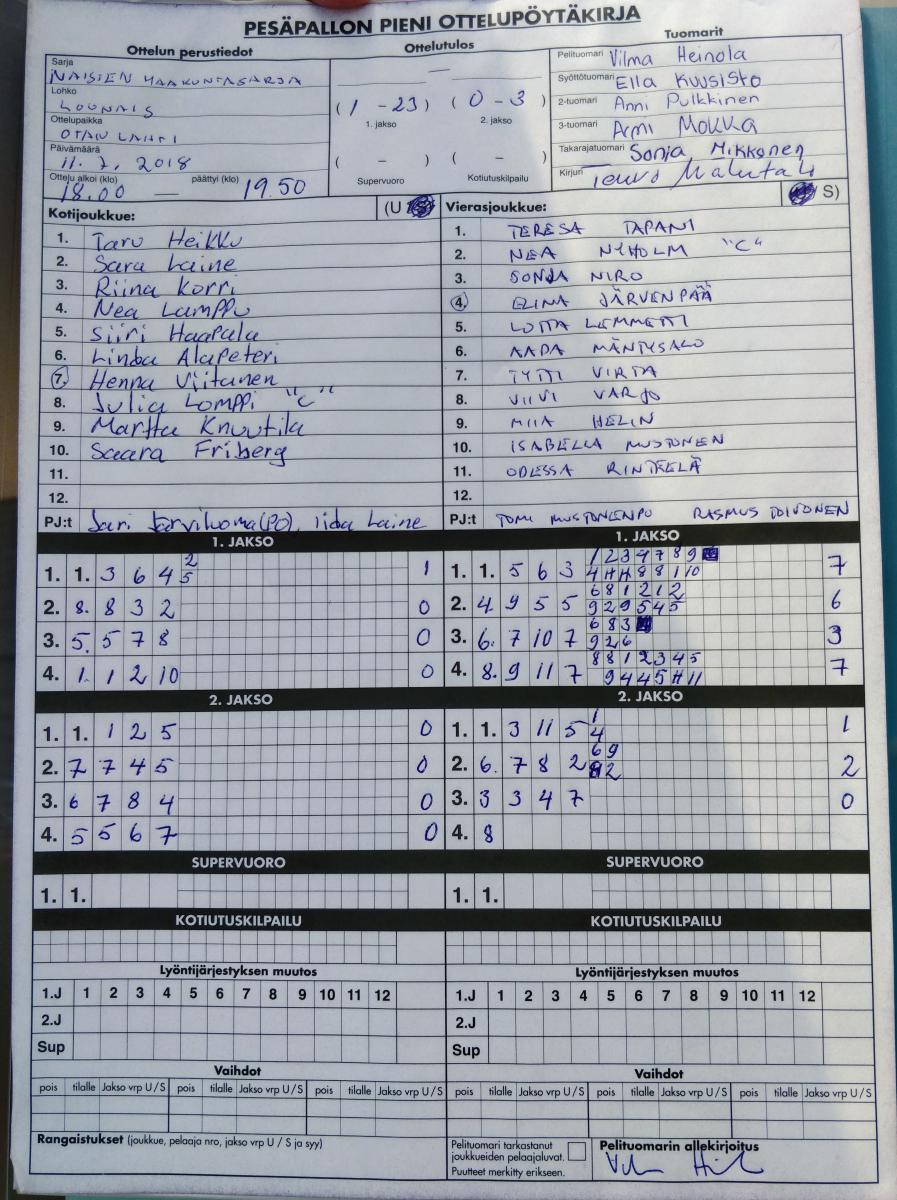 PESÄPALLON PIENI OTTELUPÖYTÄKIRJA
Ottelun perustiedot
Sarja
NAISIEN MAAKUNTASARJA
Lohko
LOUNAIS
Ottelupaikka
OTAN LAHTI
Päivämäärä
11.7.2018
Ottelu alkoi (klo) päättyi (klo)
18.00 — 19.50
Ottelutulos
—
(1 - 23) (0 - 3)
1. jakso 2. jakso
( - ) ( - )
Supervuoro Kotiutuskilpailu
Tuomarit
Pelituomari Vilma Heinola
Syöttötuomari Ella Kuusisto
2-tuomari Anni Pulkkinen
3-tuomari Armi Mokka
Takarajatuomari Sonja Mikkonen
Kirjuri
Kotijoukkue: (U
1. Taru Heikku
2. Sara Laine
3. Riina Korri
4. Nea Lamppu
5. Siiri Haapala
6. Linda Alapeteri
7. Henna Viitanen
8. Julia Lomppi "C"
9. Martta Knuutila
10. Saara Friberg
11.
12.
PJ:t Jari Järviluoma (PO), Iida Laine
Vierasjoukkue: S)
1. TERESA TAPANI
2. NEA NYHOLM "C"
3. SONJA NIRO
4. ELINA JÄRVENPÄÄ
5. LOTTA LEMMETTI
6. AADA MÄNTYSALO
7. TYTTI VIRTA
8. VIIVI VARJO
9. MIIA HELIN
10. ISABELLA MUSTONEN
11. ODESSA RINTEELÄ
12.
PJ:t TOMI MUSTONEN PO RASMUS TOIVONEN
1. JAKSO
2
1. 1. 3 6 4 5 1
2. 8. 8 3 2 0
3. 5. 5 7 8 0
4. 1. 1 2 10 0
1. JAKSO
1 2 3 4 7 8 9
1. 1. 5 6 3 4 11 11 8 8 1 10 7
6 8 1 2 1 2
2. 4 9 5 5 9 2 9 5 4 5 6
6 8 3
3. 6. 7 10 7 9 2 6 3
8 8 1 2 3 4 5
4. 8. 9 11 7 9 4 4 5 11 11 7
2. JAKSO
1. 1. 1 2 5 0
2. 7 7 4 5 0
3. 6 7 8 4 0
4. 5 5 6 7 0
2. JAKSO
1
1. 1. 3 11 5 4 1
6 9
2. 6. 7 8 2 2 2
3. 3 3 4 7 0
4. 8
SUPERVUORO
1. 1.
SUPERVUORO
1. 1.
KOTIUTUSKILPAILU
KOTIUTUSKILPAILU
Lyöntijärjestyksen muutos
1.J 1 2 3 4 5 6 7 8 9 10 11 12
2.J
Sup
Lyöntijärjestyksen muutos
1.J 1 2 3 4 5 6 7 8 9 10 11 12
2.J
Sup
Vaihdot
pois tilalle Jakso vrp U / S pois tilalle Jakso vrp U / S pois tilalle Jakso vrp U / S
Vaihdot
pois tilalle Jakso vrp U / S pois tilalle Jakso vrp U / S pois tilalle Jakso vrp U / S
Rangaistukset (joukkue, pelaaja nro, jakso vrp U / S ja syy)
Pelituomari tarkastanut
joukkueiden pelaajaluvat.
Puutteet merkitty erikseen.
Pelituomarin allekirjoitus